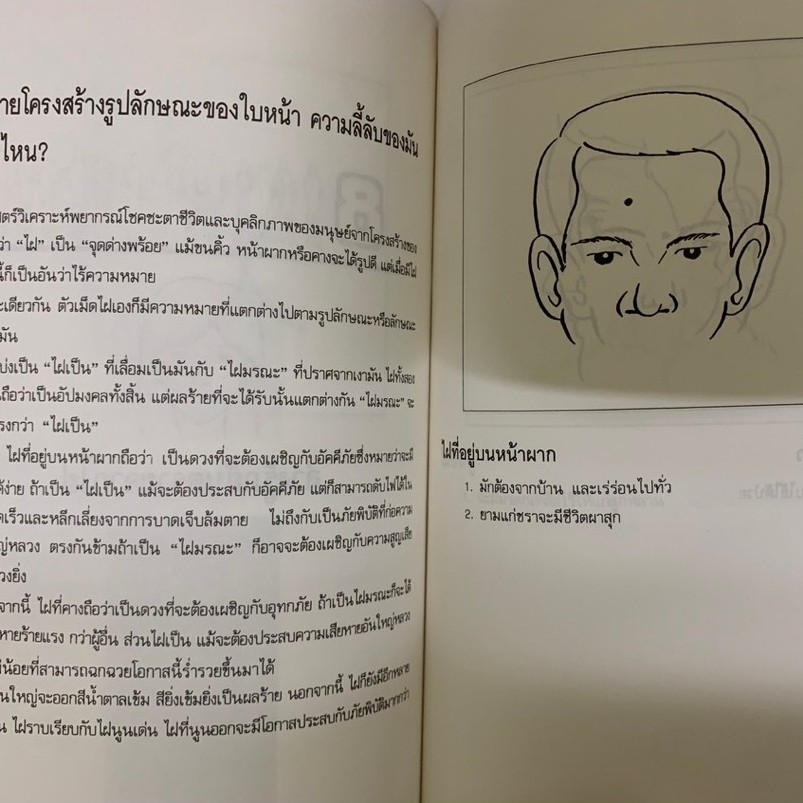 ายโครงสร้างรูปลักษณะของใบหน้า ความลี้ลับของมัน
ไหน?
ตร์วิเคราะห์พยากรณ์โชคชะตาชีวิตและบุคลิกภาพของมนุษย์จากโครงสร้างของ
ว่า “ไฝ” เป็น “จุดด่างพร้อย” แม้ขนคิ้ว หน้าผากหรือคางจะได้รูปดี แต่เมื่อมีไฝ
นี้ก็เป็นอันว่าไร้ความหมาย
ะเดียวกัน ตัวเม็ดไฝเองก็มีความหมายที่แตกต่างไปตามรูปลักษณะหรือลักษณะ
มัน
บ่งเป็น “ไฝเป็น” ที่เลื่อมเป็นมันกับ “ไฝมรณะ” ที่ปราศจากเงามัน ไฝทั้งสอง
ถือว่าเป็นอัปมงคลทั้งสิ้น แต่ผลร้ายที่จะได้รับนั้นแตกต่างกัน “ไฝมรณะ” จะ
รงกว่า “ไฝเป็น”
ไฝที่อยู่บนหน้าผากถือว่า เป็นดวงที่จะต้องเผชิญกับอัคคีภัยซึ่งหมายว่าจะมี
ด้ง่าย ถ้าเป็น “ไฝเป็น” แม้จะต้องประสบกับอัคคีภัย แต่ก็สามารถดับไฟได้ใน
ดเร็วและหลีกเลี่ยงจากการบาดเจ็บล้มตาย ไม่ถึงกับเป็นภัยพิบัติที่ก่อความ
ญ่หลวง ตรงกันข้ามถ้าเป็น “ไฝมรณะ” ก็อาจจะต้องเผชิญกับความสูญเสีย
วงยิ่ง
จากนี้ ไฝที่คางถือว่าเป็นดวงที่จะต้องเผชิญกับอุทกภัย ถ้าเป็นไฝมรณะก็จะได้
หายร้ายแรง กว่าผู้อื่น ส่วนไฝเป็น แม้จะต้องประสบความเสียหายอันใหญ่หลวง
น้อยที่สามารถฉกฉวยโอกาสนี้ร่ำรวยขึ้นมาได้
นใหญ่จะออกสีน้ำตาลเข้ม สียิ่งเข้มยิ่งเป็นผลร้าย นอกจากนี้ ไฝก็ยังมีอีกหลาย
น ไฝราบเรียบกับไฝนูนเด่น ไฝที่นูนออกจะมีโอกาสประสบกับภัยพิบัติมากกว่า
ไฝที่อยู่บนหน้าผาก
1. มักต้องจากบ้าน และเร่ร่อนไปทั่ว
2. ยามแก่ชราจะมีชีวิตผาสุก